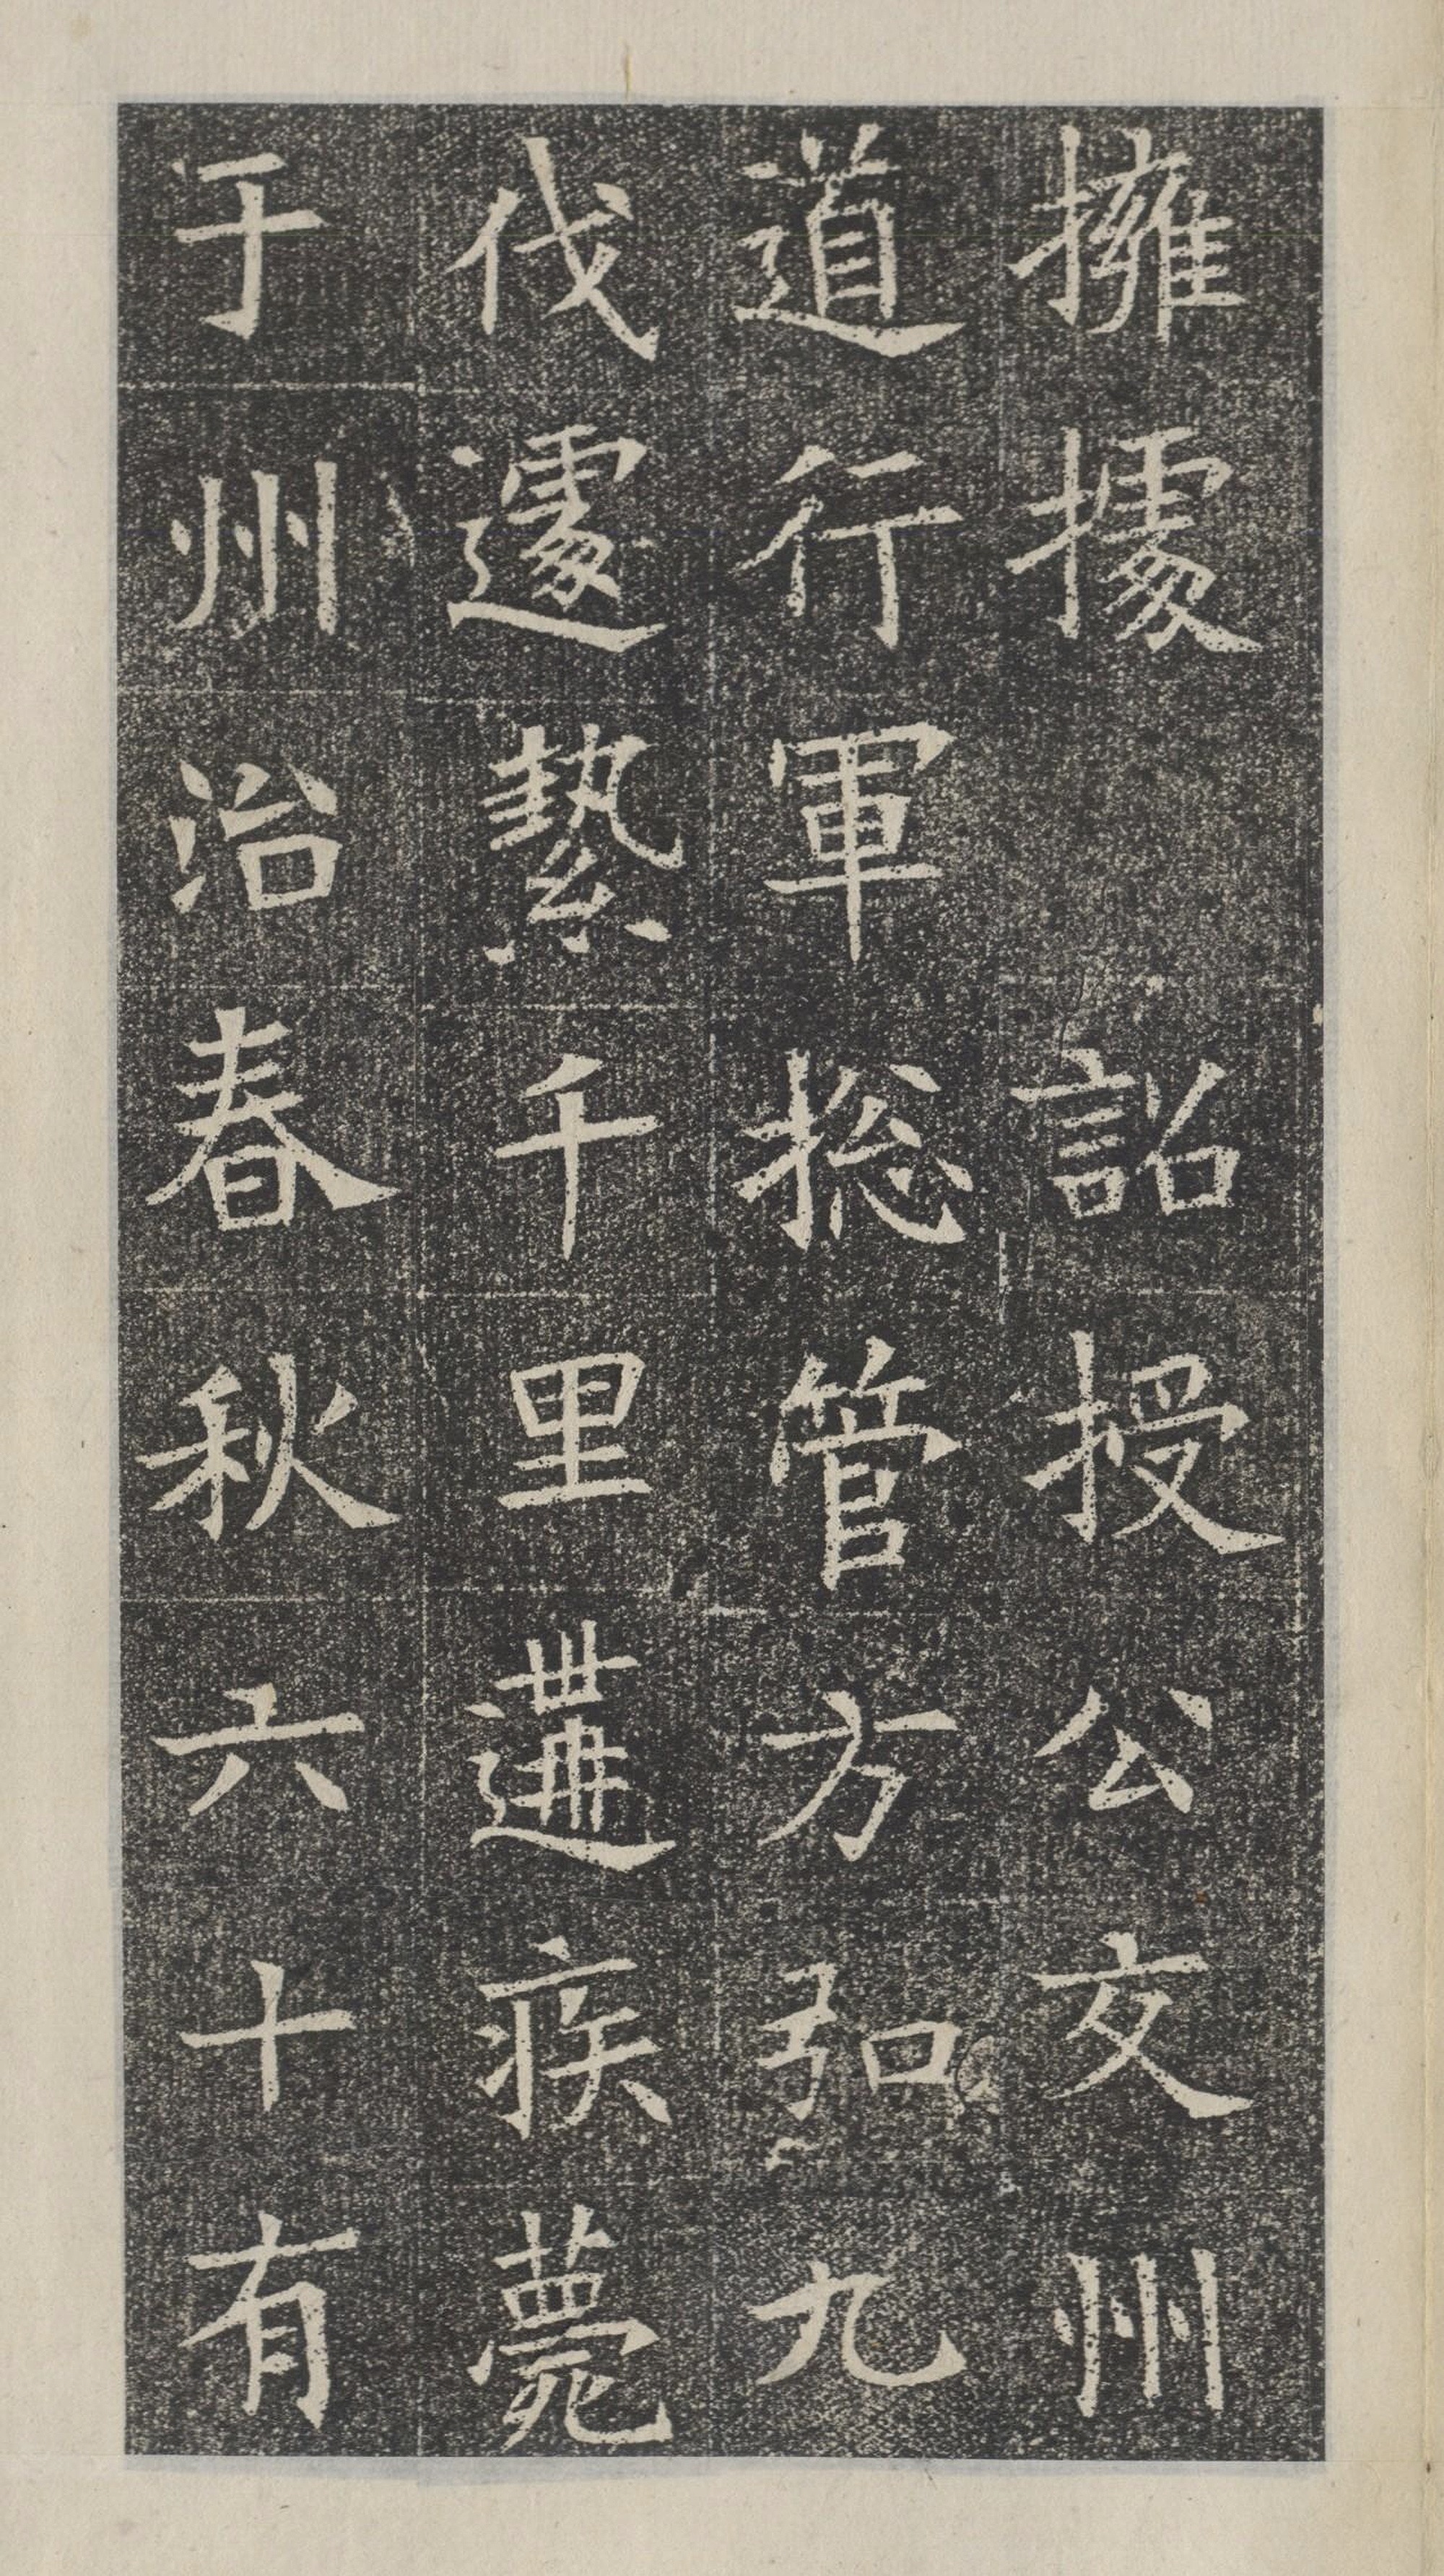 擁據 詔授公交州
道行軍捴管方弘九
伐遽縶千里遘疾薨
于州治春秋六十有